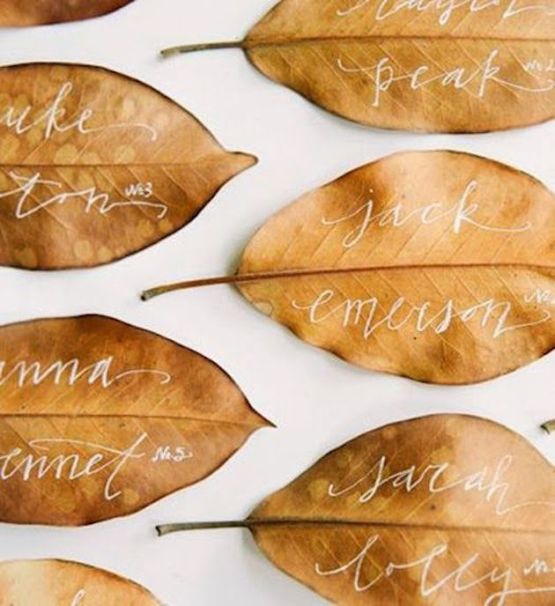 peak
uke
ton No3
jack
emerson
nna
ennet No.5
sarah
lolly